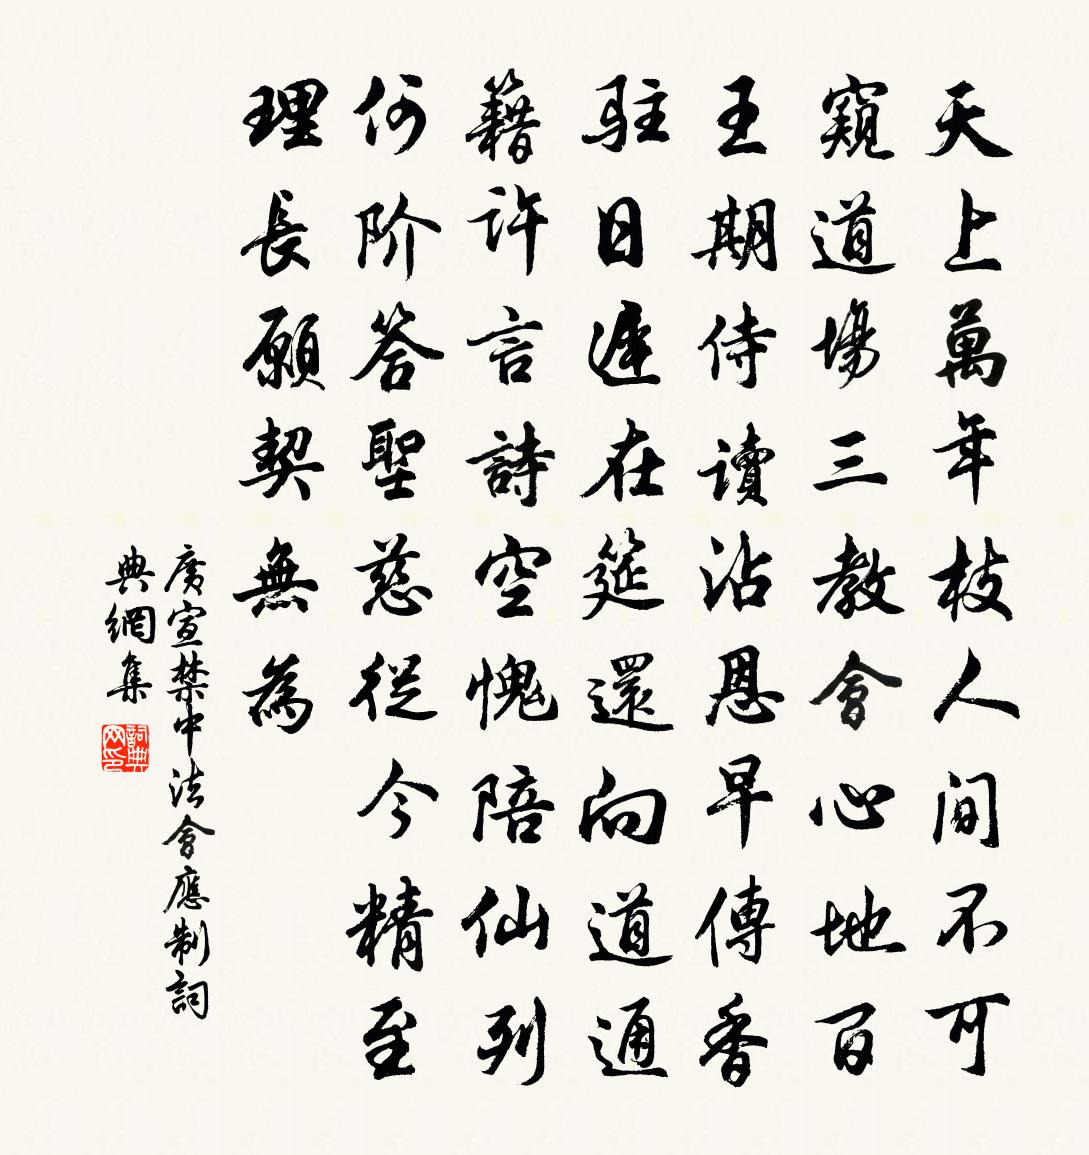 天上萬年枝人間不可
窺道場三教會心地百
王期侍讀沾恩早傳香
駐日遲在筵還向道通
籍許言詩空愧陪仙列
何阶答聖慈從今精至
理長願契無為
广宣禁中法會應制詞
典網集
詞典网印